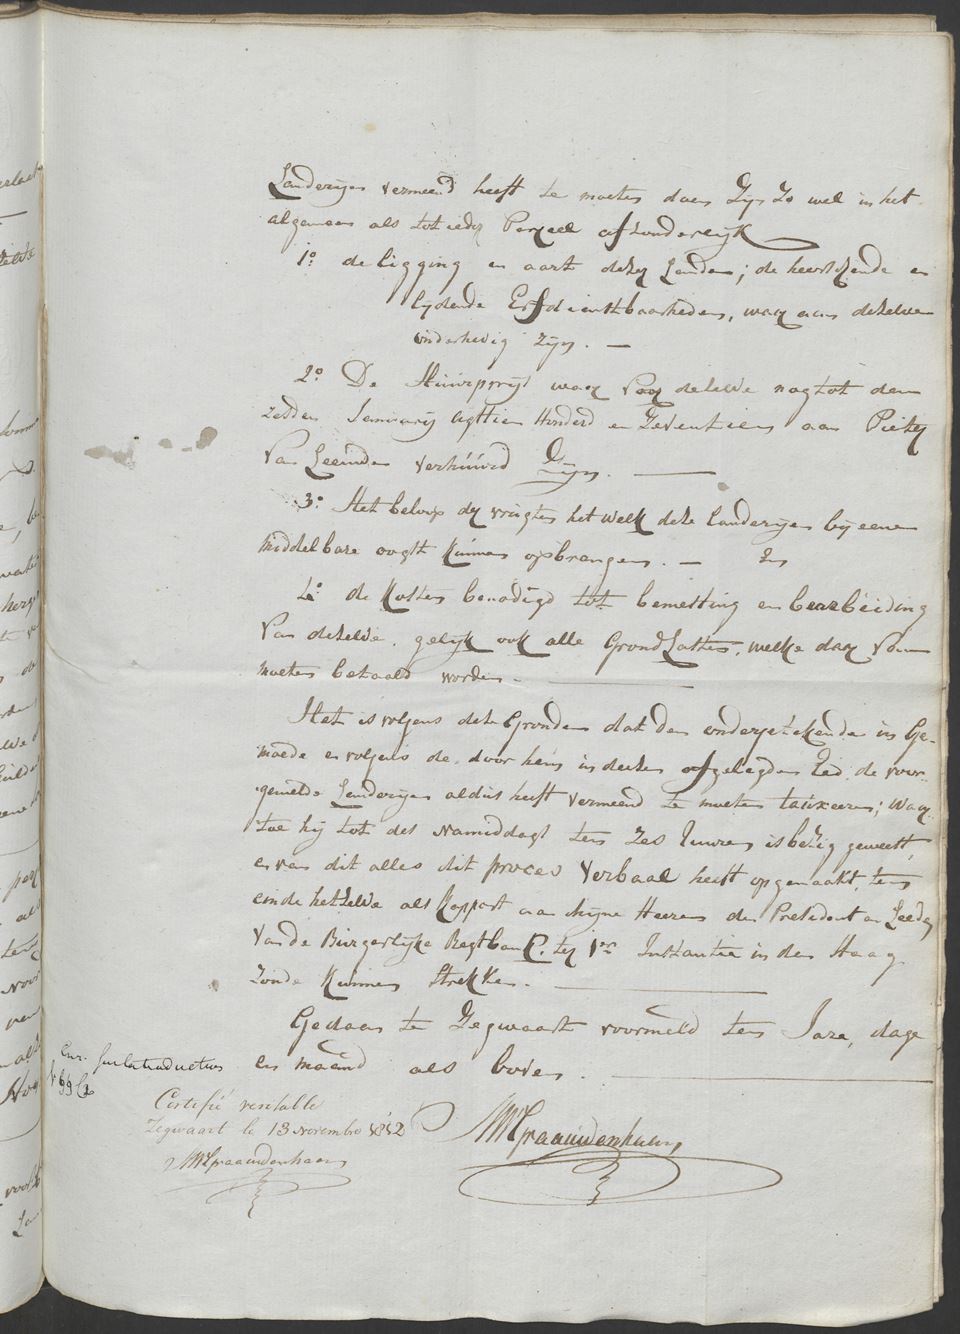 Landerijen vermeend heeft te moeten doen zijn zo wel in het
algemeen als tot ieder Perceel afzonderlijk
1o. de ligging en aart dezer Landen; de heerschende en
lijdende Erfdienstbaarheden, waar aan dezelven
onderhevig zijn. —
2o. De Huurprijs waar voor dezelve nog tot den
January Agttien Honderd en Zeventien aan Pieter
Van Leeuwen verhuurd zijn. —
3o. Het beloop der vrugten het welk deze Landerijen bij eene
middelbare oogst kunnen opbrengen. — En
4o. de Kosten benodigd tot bemesting en bearbeiding
van dezelve, gelijk ook alle Grondlasten, welke daar van
moeten betaald worden. —
Het is volgens deze Gronden dat den ondergetekende in Ge-
moede en volgens de door hem in deezen afgelegden Eed, de voor-
gemelde Landerijen aldus heeft vermeend te moeten tauxeeren; waar
toe hij tot des namiddags ten zes Uuren is bezig geweest,
en van dit alles dit proces Verbaal heeft opgemaakt, ten
einde hetzelve als Rapport aan Mijne Heeren de President en Leeden
van de Burgerlijke Regtbank ter 1e. Instantie in den Haag
zoude kunnen strekken. —
Gedaan te Zegwaart voormeld ten Jare, dage
en maand als boven. —
pour la traduction
Certifié veritable
Zegwaart le 13 Novembre 1812